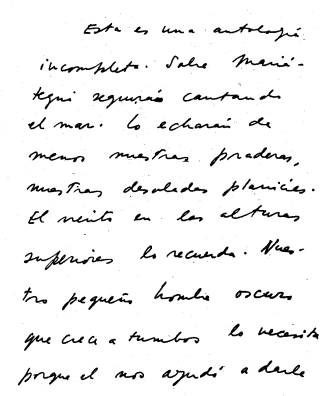 Esta es una antología
incompleta. Sobre Mariá-
tegui seguirá cantando
el mar. Lo echarán de
menos nuestras praderas,
nuestras desoladas planicies.
El viento en las alturas
superiores lo recuerda. Nues-
tro pequeño hombre oscuro
que crece a tumbos lo necesita
porque él nos ayudó a darle